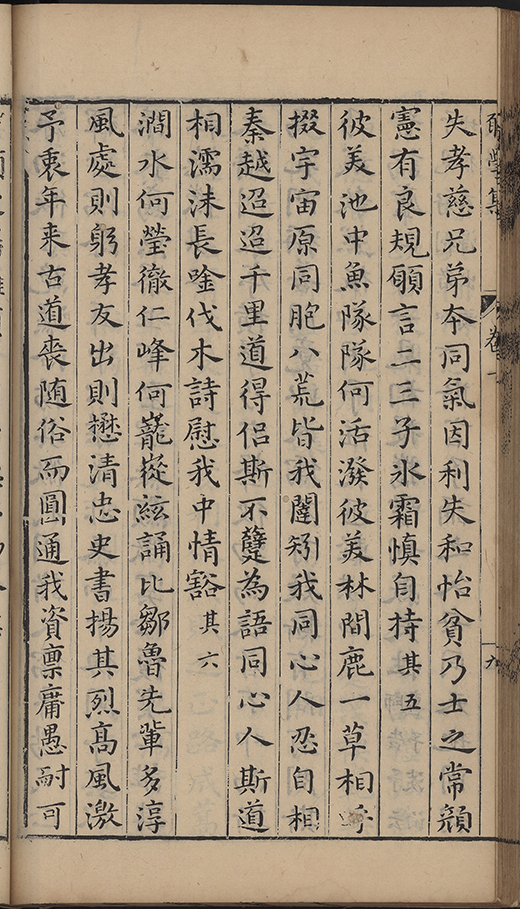 學集 卷一 九
失孝慈兄弟夲同氣因利失和怡貧乃士之常顔
憲有良規願言二三子氷霜慎自持 其五
彼美池中魚隊隊何活潑彼美林間鹿一草相呼
掇宇宙原同胞八荒皆我闥矧我同心人忍自相
秦越迢迢千里道得侣斯不躠為語同心人斯道
相濡沫長唫伐木詩慰我中情豁 其六
澗水何瑩徹仁峰何巃嵸絃誦比鄒魯先軰多淳
風處則躬孝友出則懋清忠史書揚其烈髙風激
予衷年来古道喪随俗而圓通我資禀庸愚耐可